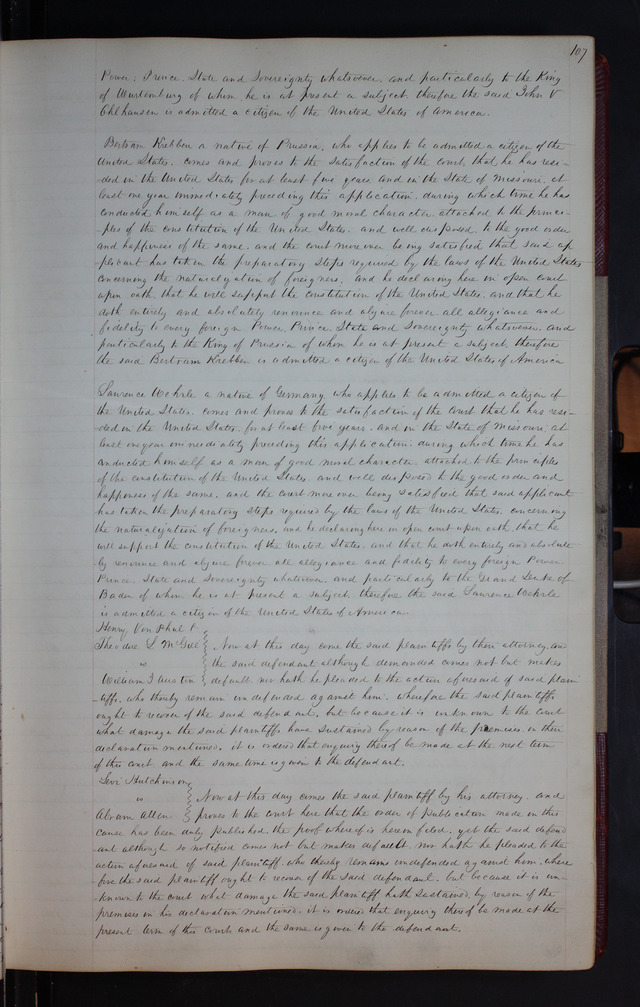 107
Power, Prince, State and Sovereignty whatsoever, and particularly to the King
of Wurtemburg of whom he is at present a subject. therefore the said John V
Ohlhausen is admitted a citizen of the United States of America.
Bertram Krebben a native of Prussia, who applies to be admitted a citizen of the
United States. comes and proves to the satisfaction of the court, that he has resi-
-ded in the United States for at least five years and in the State of Missouri, at
least one year immediately preceding this application. during which time he has
conducted himself as a man of good moral character attached to the princi-
-ples of the constitution of the United States. and well disposed, to the good order
and happiness of the same. and the court moreover being satisfied that said ap
plicant has taken the preparatory steps required by the laws of the United States
concerning the naturalization of foreigners, and he declaring here in open court
upon oath, that he will support the constitution of the United States. and that he
doth entirely and absolutely renounce and abjure forever all allegiance and
fidelity to every foreign Power, Prince, State and Sovereignty whatsoever. and
particularly to the King of Prussia of whom he is at present a subject, therefore
the said Bertram Krebben is admitted a citizen of the United States of America
Laurence Wehrle a native of Germany who applies to be admitted a citizen of
the United States. comes and proves to the satisfaction of the Court that he has resi-
-ded in the United States for at least five years. and in the State of Missouri, at
least one year immediately preceding this application. during which time he has
conducted himself as a man of good moral character attached to the principles
of the constitution of the United States. and well disposed to the good order and
happiness of the same. and the court moreover being satisfied that said applicant
has taken the preparatory steps required by the laws of the United States, concerning
the naturalization of foreigners, and he declaring here in open court upon oath, that he
will support the constitution of the United States. and that he doth entirely and absolute
-ly renounce and abjure forever all allegiance and fidelity to every foreign Power
Prince, State and Sovereignty whatsoever. and particularly to the Grand Duke of
Baden of whom he is at present a subject, therefore the said Laurence Wehrle
is admitted a citizen of the United States of America.
Henry Von Phul &
Theodore L McGill Now at this day come the said plaintiffs by their attorney, and
vs the said defendant although demanded comes not but makes
William T Austin default nor hath he pleaded to the action aforesaid of said plain
-tiffs, who thereby remain undefended against him. wherefore the said plaintiffs
ought to recover of the said defendant, but because it is unknown to the court
what damage the said plaintiffs have sustained by reason of the premises in their
declaration mentioned, it is ordered that enquiry thereof be made at the next term
of this court and the same time is given to the defendant.
Levi Hutchinson
vs Now at this day comes the said plaintiff by his attorney. and
Abram Allen proves to the court here that the order of publication made in this
cause has been duly published, the proof whereof is herein filed, yet the said defend
-ant although so notified comes not but makes default nor hath he pleaded to the
action aforesaid of said plaintiff, who thereby remains undefended against him, where
-fore the said plaintiff ought to recover of the said defendant. but because it is un-
-known to the court what damage the said plaintiff hath sustained, by reason of the
premises in his declaration mentioned. it is ordered that enquiry thereof be made at the
present term of this court and the same is given to the defendant.